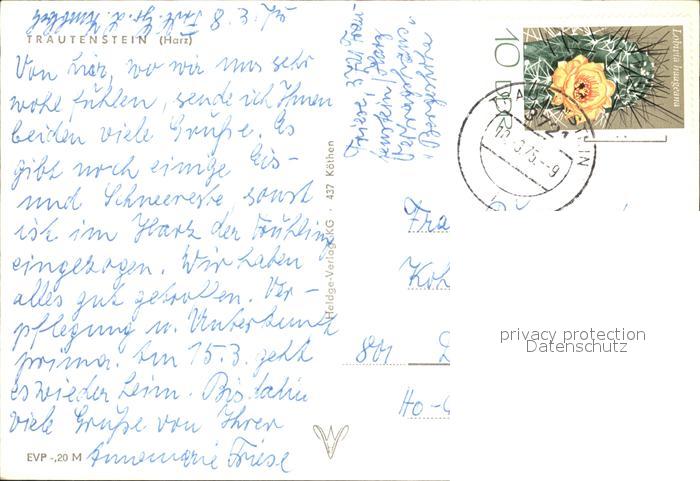 TRAUTENSTEIN (Harz)
Von hier, wo wir uns sehr
wohl fühlen, sende ich Ihnen
beiden viele Grüße. Es
gibt noch einige Eis-
und Schneereste, sonst
ist im Harz der Frühling
eingezogen. Wir haben
alles gut getroffen. Ver-
pflegung u. Unterkunft
prima. Am 15.3. geht
es wieder heim. Bis dahin
viele Grüße von Ihrer
Annemarie Friese
EVP -,20 M
Heldge-Verlag KG · 437 Köthen
Friese
10 DDR
Lobivia haageana
Fra
801
Ho-
privacy protection
Datenschutz